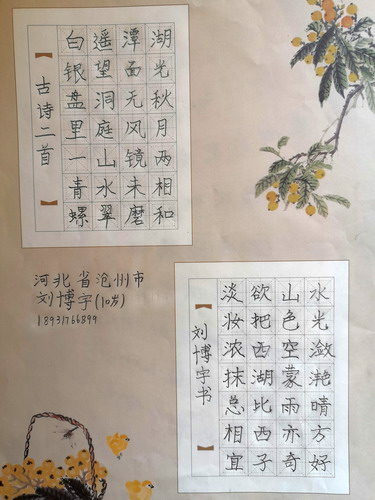 湖光秋月两相和
潭面无风镜未磨
遥望洞庭山水翠
白银盘里一青螺
古诗二首
河北省沧州市
刘博宇(10岁)
18931766899
水光潋滟晴方好
山色空蒙雨亦奇
欲把西湖比西子
淡妆浓抹总相宜
刘博宇书